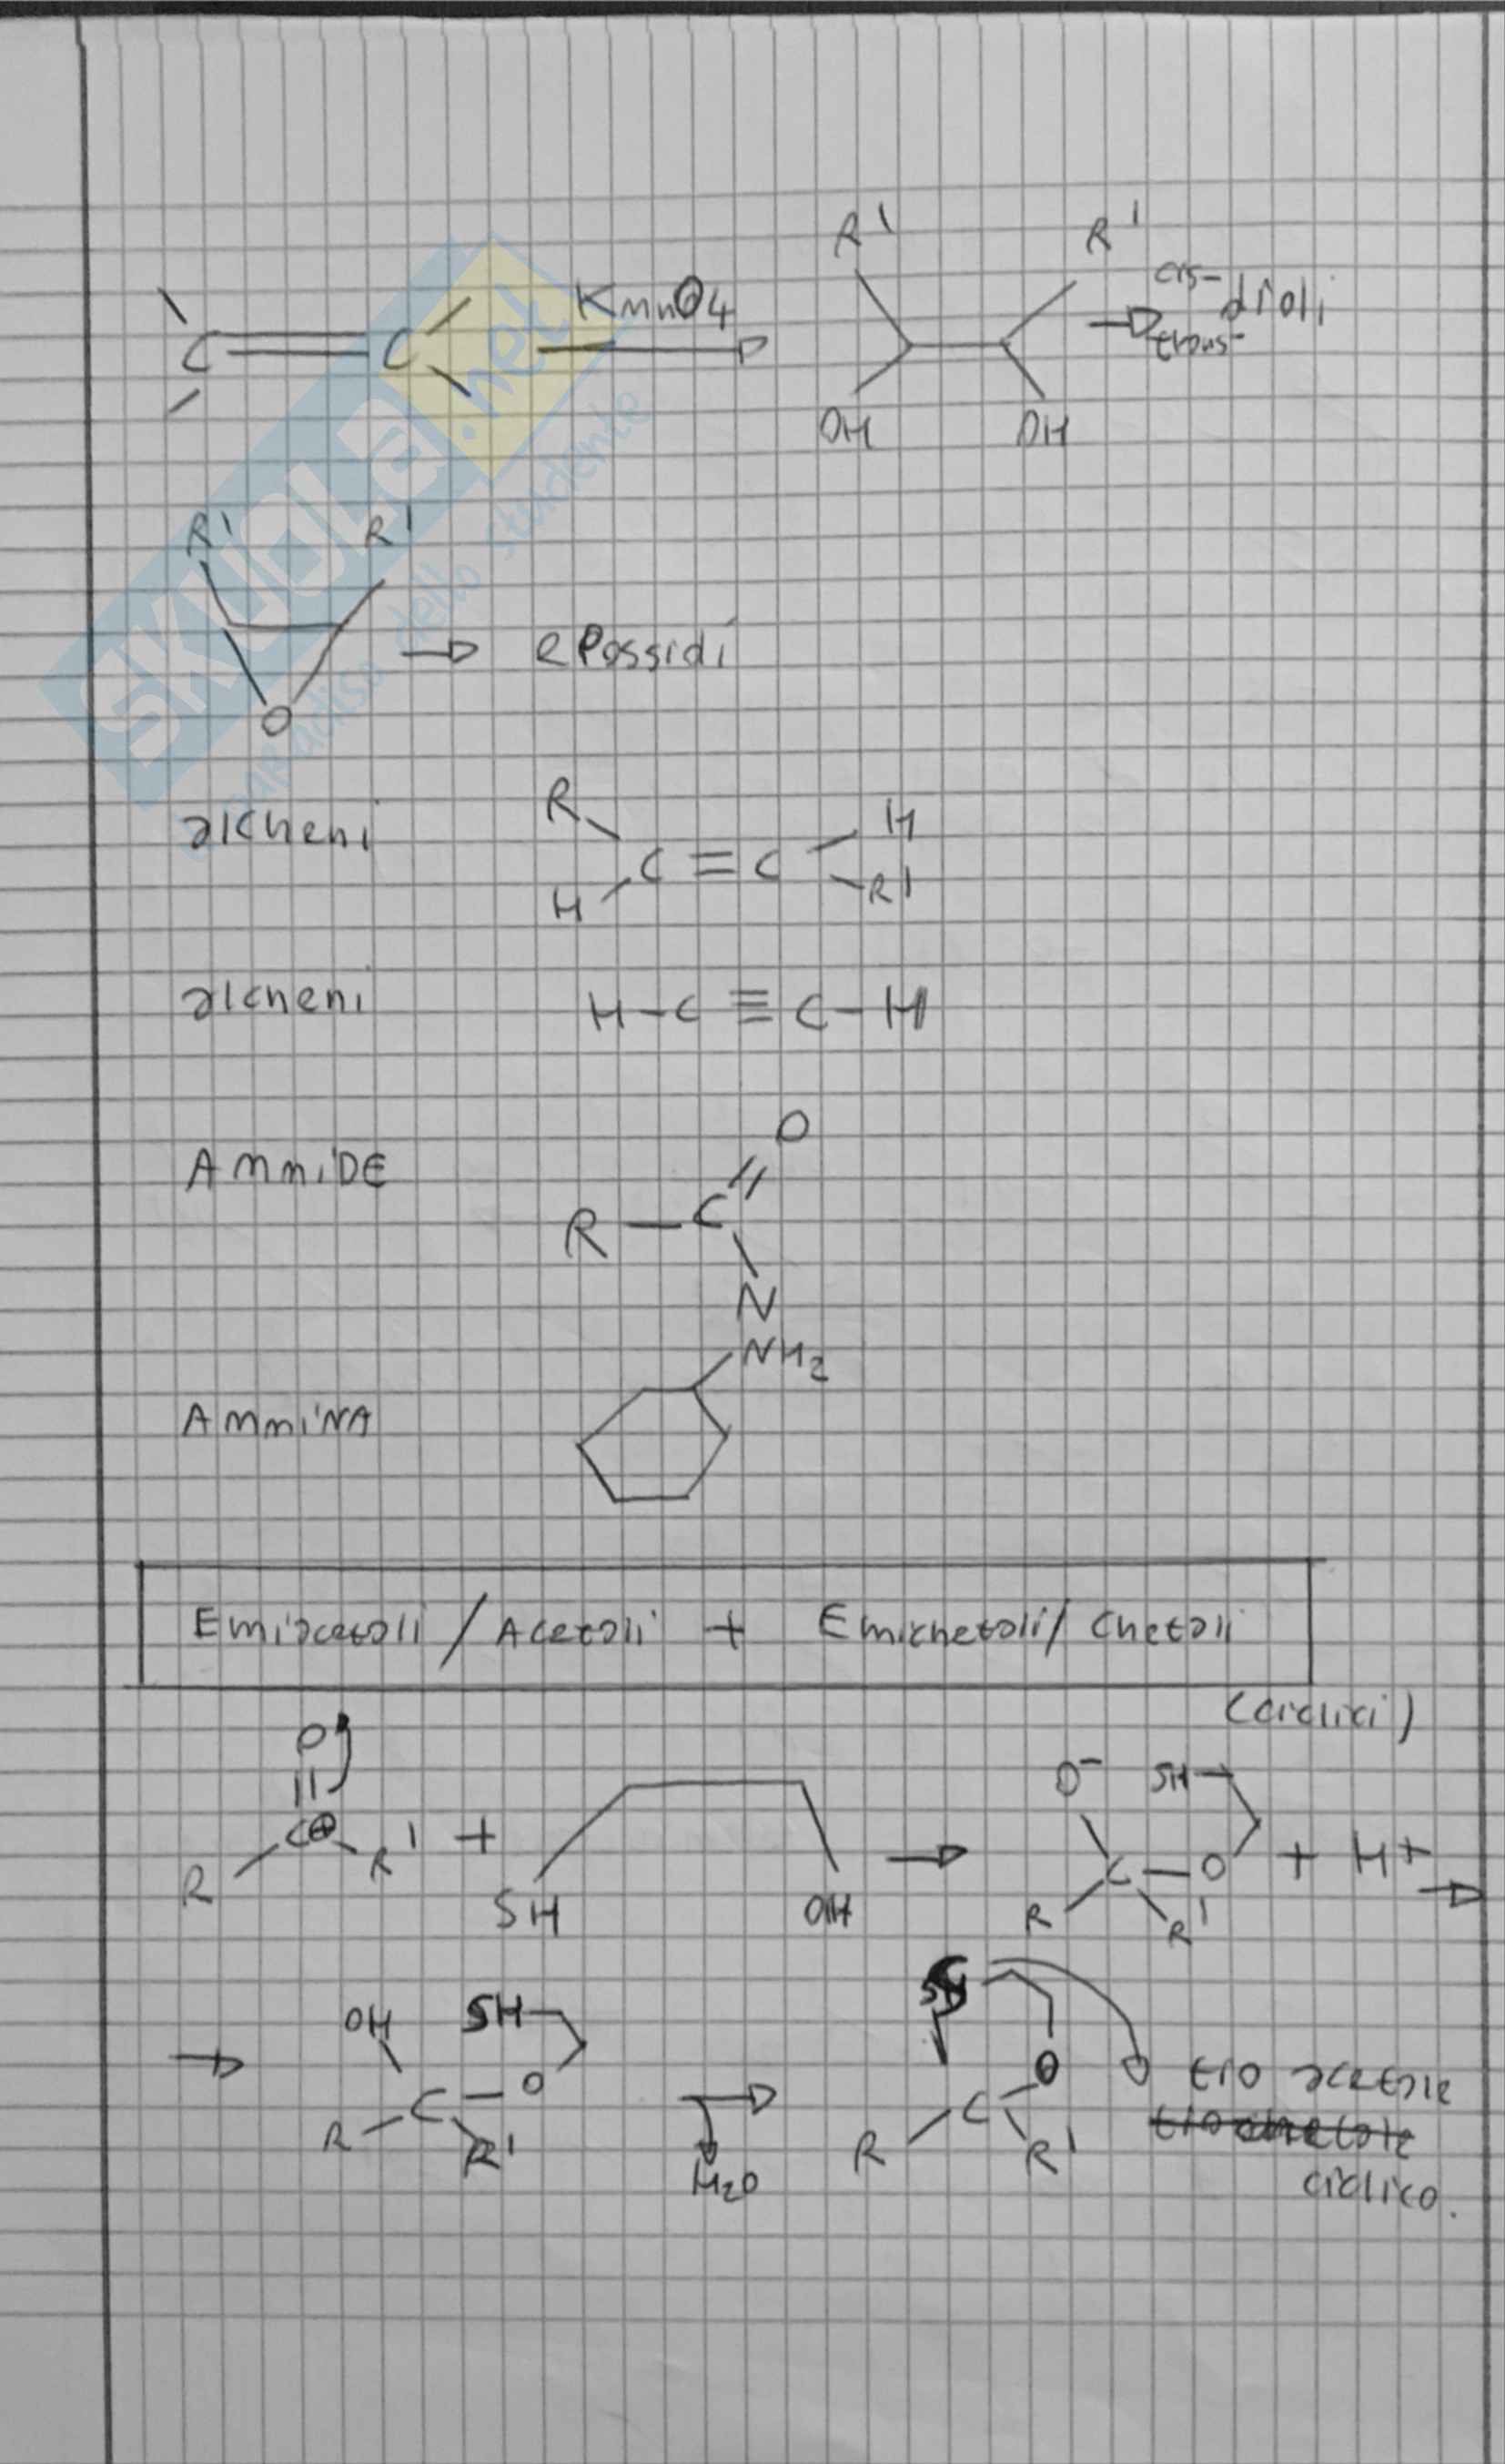 R' R'
C = C KmnO4 cis- dioli
trans-
OH OH
R' R'
→ ePossidi
O
SKUOLA.net
paradiso dello studente
alcheni R H
C = C
H R'
alcheni H - C ≡ C - H
AmmiDE O
R - C
N
AmminA NH2
Emiacetali / Acetali + Emichetali / Chetali
(ciclici)
O O⁻ SH
C⊕ R' + → C - O + H+ →
R SH OH R R'
→ OH SH S
C - O → C O tio acetale
R R' H2O R R' tiochetale
ciclico.